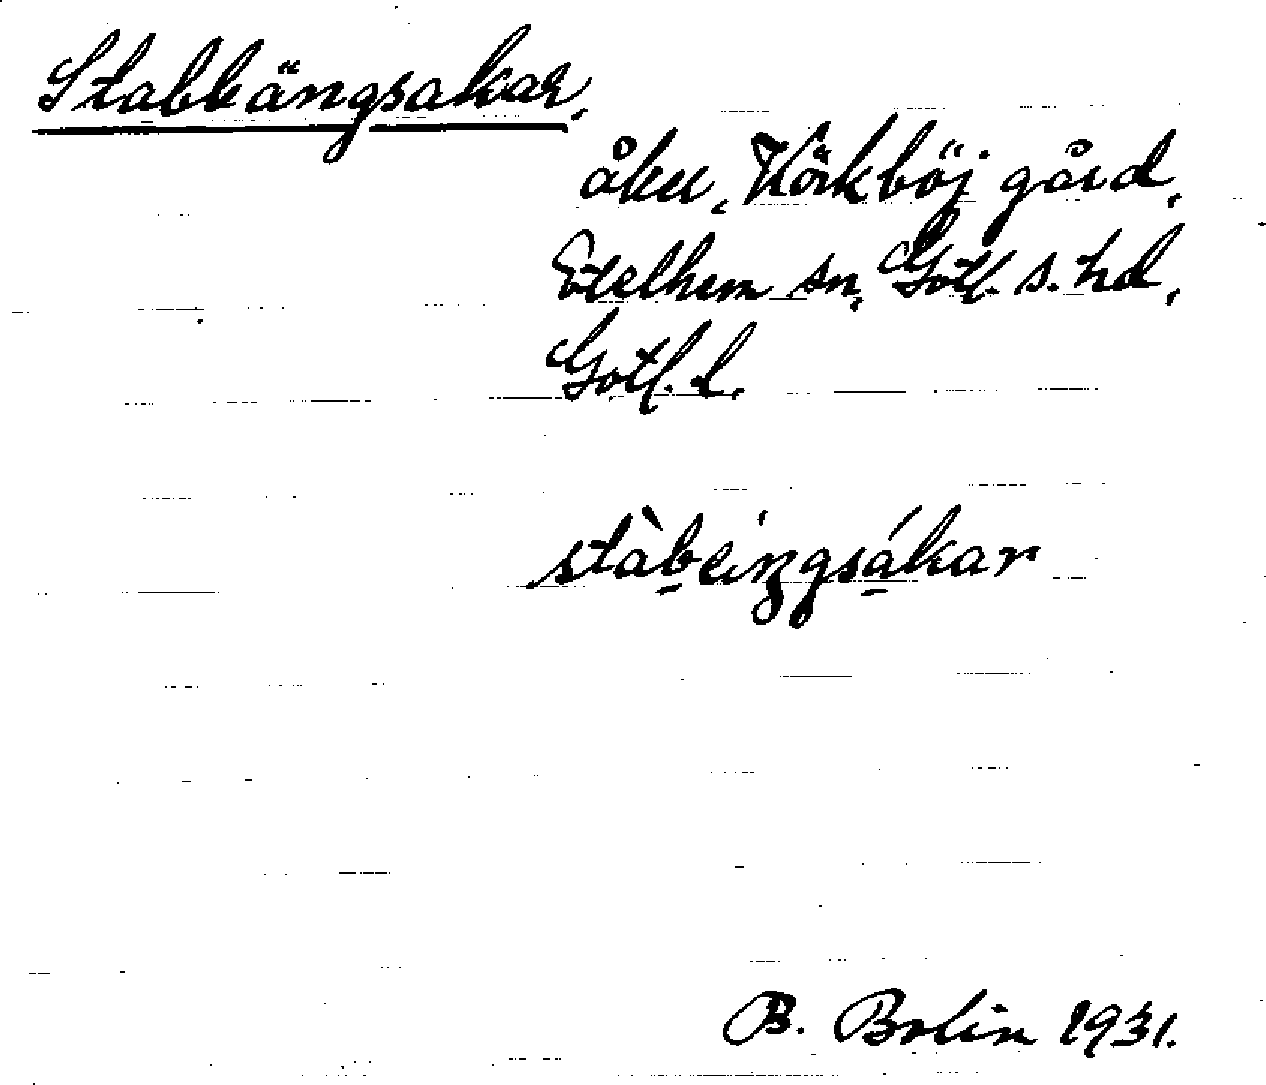 Stabbängsakar,
åker, Körkböj gård,
Etelhem sn, Gotl. s. hd,
Gotl. l.
stàbeiŋgsákar
B. Bolin 1931.